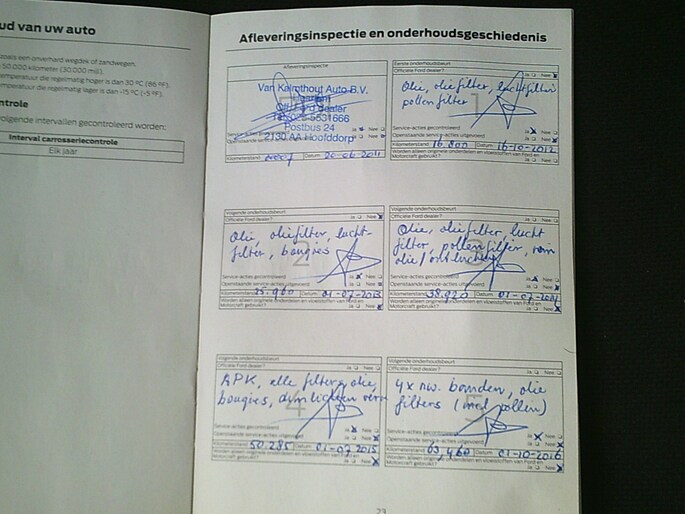 ud van uw auto
zoals een onverherd wegdek of zandwegen.
50.000 kilometer (30.000 mijl).
emperatuur die regelmatig hoger is dan 30 ºC (86 ºF).
emperatuur die regelmatig lager is dan -15 ºC (-5 ºF).
ntrole
volgende intervallen gecontroleerd worden:
Interval carrosseriecontrole
Elk jaar
Afleveringsinspectie en onderhoudsgeschiedenis
Afleveringsinspectie
Van Kalmthout Auto B.V.
Off. Ford dealer
Postbus 24
2130 AA Hoofddorp
Kilometerstand Datum 20-06-2011
Eerste onderhoudsbeurt
Officiële Ford dealer? Ja Nee
Olie, oliefilter, luchtfilter
pollenfilter
1
Service-acties gecontroleerd Ja Nee
Openstaande service-acties uitgevoerd Ja Nee
Kilometerstand 16.800 Datum 16-10-2012
Worden alleen originele onderdelen en vloeistoffen van Ford en
Motorcraft gebruikt? Ja Nee
Volgende onderhoudsbeurt
Officiële Ford dealer? Ja Nee
Olie, oliefilter, lucht
filter, bougies
2
Service-acties gecontroleerd Ja Nee
Openstaande service-acties uitgevoerd Ja Nee
Kilometerstand 25.960 Datum 01-07-2013
Worden alleen originele onderdelen en vloeistoffen van Ford en
Motorcraft gebruikt? Ja Nee
Volgende onderhoudsbeurt
Officiële Ford dealer? Ja Nee
Olie, oliefilter, lucht
filter, pollenfilter, rem
olie/ontluchten
3
Service-acties gecontroleerd Ja Nee
Openstaande service-acties uitgevoerd Ja Nee
Kilometerstand 38.920 Datum 01-07-2014
Worden alleen originele onderdelen en vloeistoffen van Ford en
Motorcraft gebruikt? Ja Nee
Volgende onderhoudsbeurt
Officiële Ford dealer? Ja Nee
APK, alle filters, olie,
bougies, dimlichten verv
4
Service-acties gecontroleerd Ja Nee
Openstaande service-acties uitgevoerd Ja Nee
Kilometerstand 50.285 Datum 01-07-2015
Worden alleen originele onderdelen en vloeistoffen van Ford en
Motorcraft gebruikt? Ja Nee
Volgende onderhoudsbeurt
Officiële Ford dealer? Ja Nee
4x nw. banden, olie
filters (incl. pollen)
5
Service-acties gecontroleerd Ja Nee
Openstaande service-acties uitgevoerd Ja Nee
Kilometerstand 63,460 Datum 01-10-2016
Worden alleen originele onderdelen en vloeistoffen van Ford en
Motorcraft gebruikt? Ja Nee
23